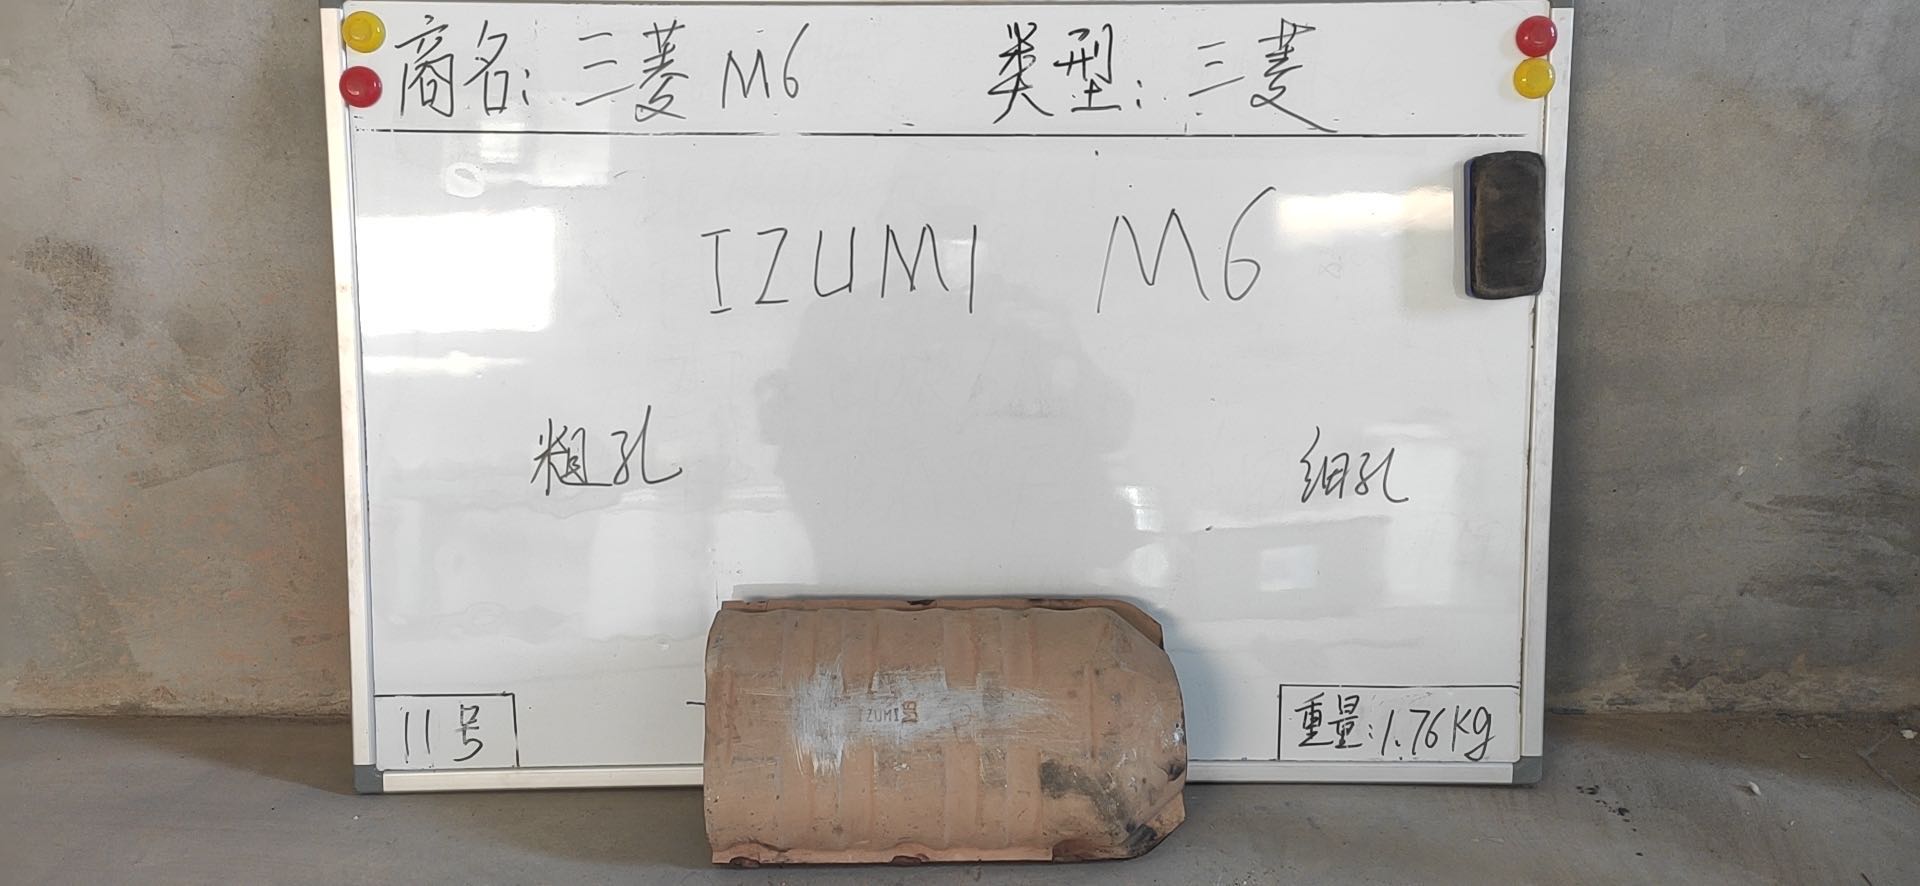 商名: 三菱 M6 类型: 三菱
IZUMI M6
粗孔 细孔
IZUMI
11号 重量: 1.76Kg